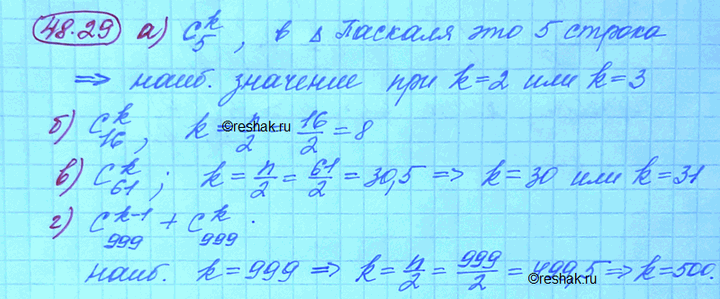 48.29 а) C₅ᵏ, в Δ Паскаля это 5 строка
=> наиб. значение при k=2 или k=3
б) C₁₆ᵏ, k = n/2 = 16/2 = 8
©reshak.ru
в) C₆₁ᵏ; k = n/2 = 61/2 = 30,5 => k=30 или k=31
г) C₉₉₉ᵏ⁻¹ + C₉₉₉ᵏ.
наиб. k=999 => k = n/2 = 999/2 = 499,5 => k=500.
©reshak.ru